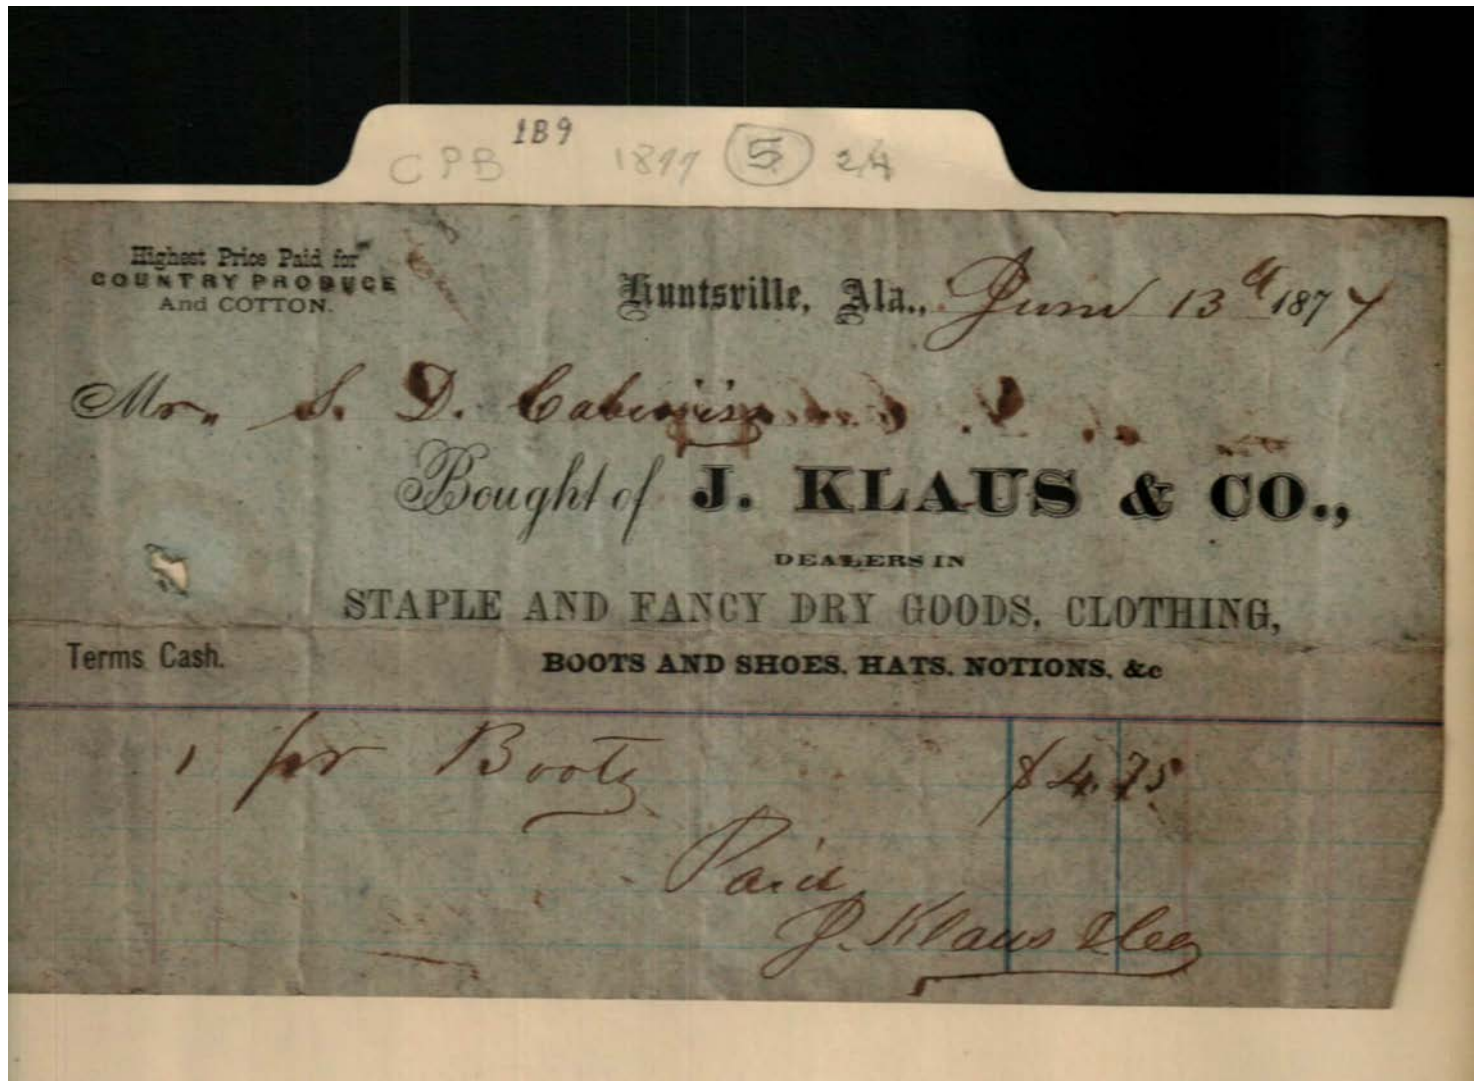 189
CPB 1877 5 24
Highest Price Paid for
COUNTRY PRODUCE
And COTTON.
Huntsville, Ala., June 13th 1877
Mr. S. D. Cabaniss
Bought of J. KLAUS & CO.,
DEALERS IN
STAPLE AND FANCY DRY GOODS, CLOTHING,
Terms Cash.
BOOTS AND SHOES, HATS, NOTIONS, &c
1 pr Boots $4.75
Paid
J. Klaus & Co